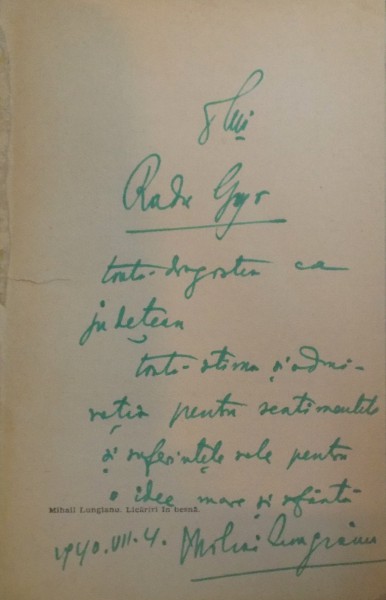 Dlui
Radu Gyr
toată dragostea ca
județean
toată stima și admi-
rația pentru sentimentele
și suferințele sale pentru
o idee mare și sfântă
Mihail Lungianu. Licăriri în beznă.
1940.VII.4. Mihail Lungianu